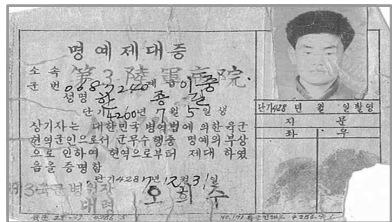 명예제대증
소속 第3陸軍病院
군번 0687240 이중
성명 한종길
단기4260년 7월 5일생
상기자는 대한민국 병역법에 의한 육군
현역군인으로서 군무수행중 명예의 부상
으로 인하여 현역으로부터 제대하였
음을 증명함
단기4287년 12월 31일
제3육군병원장
대령 오희수
단기428 년 월 일 촬영
지문
좌 우